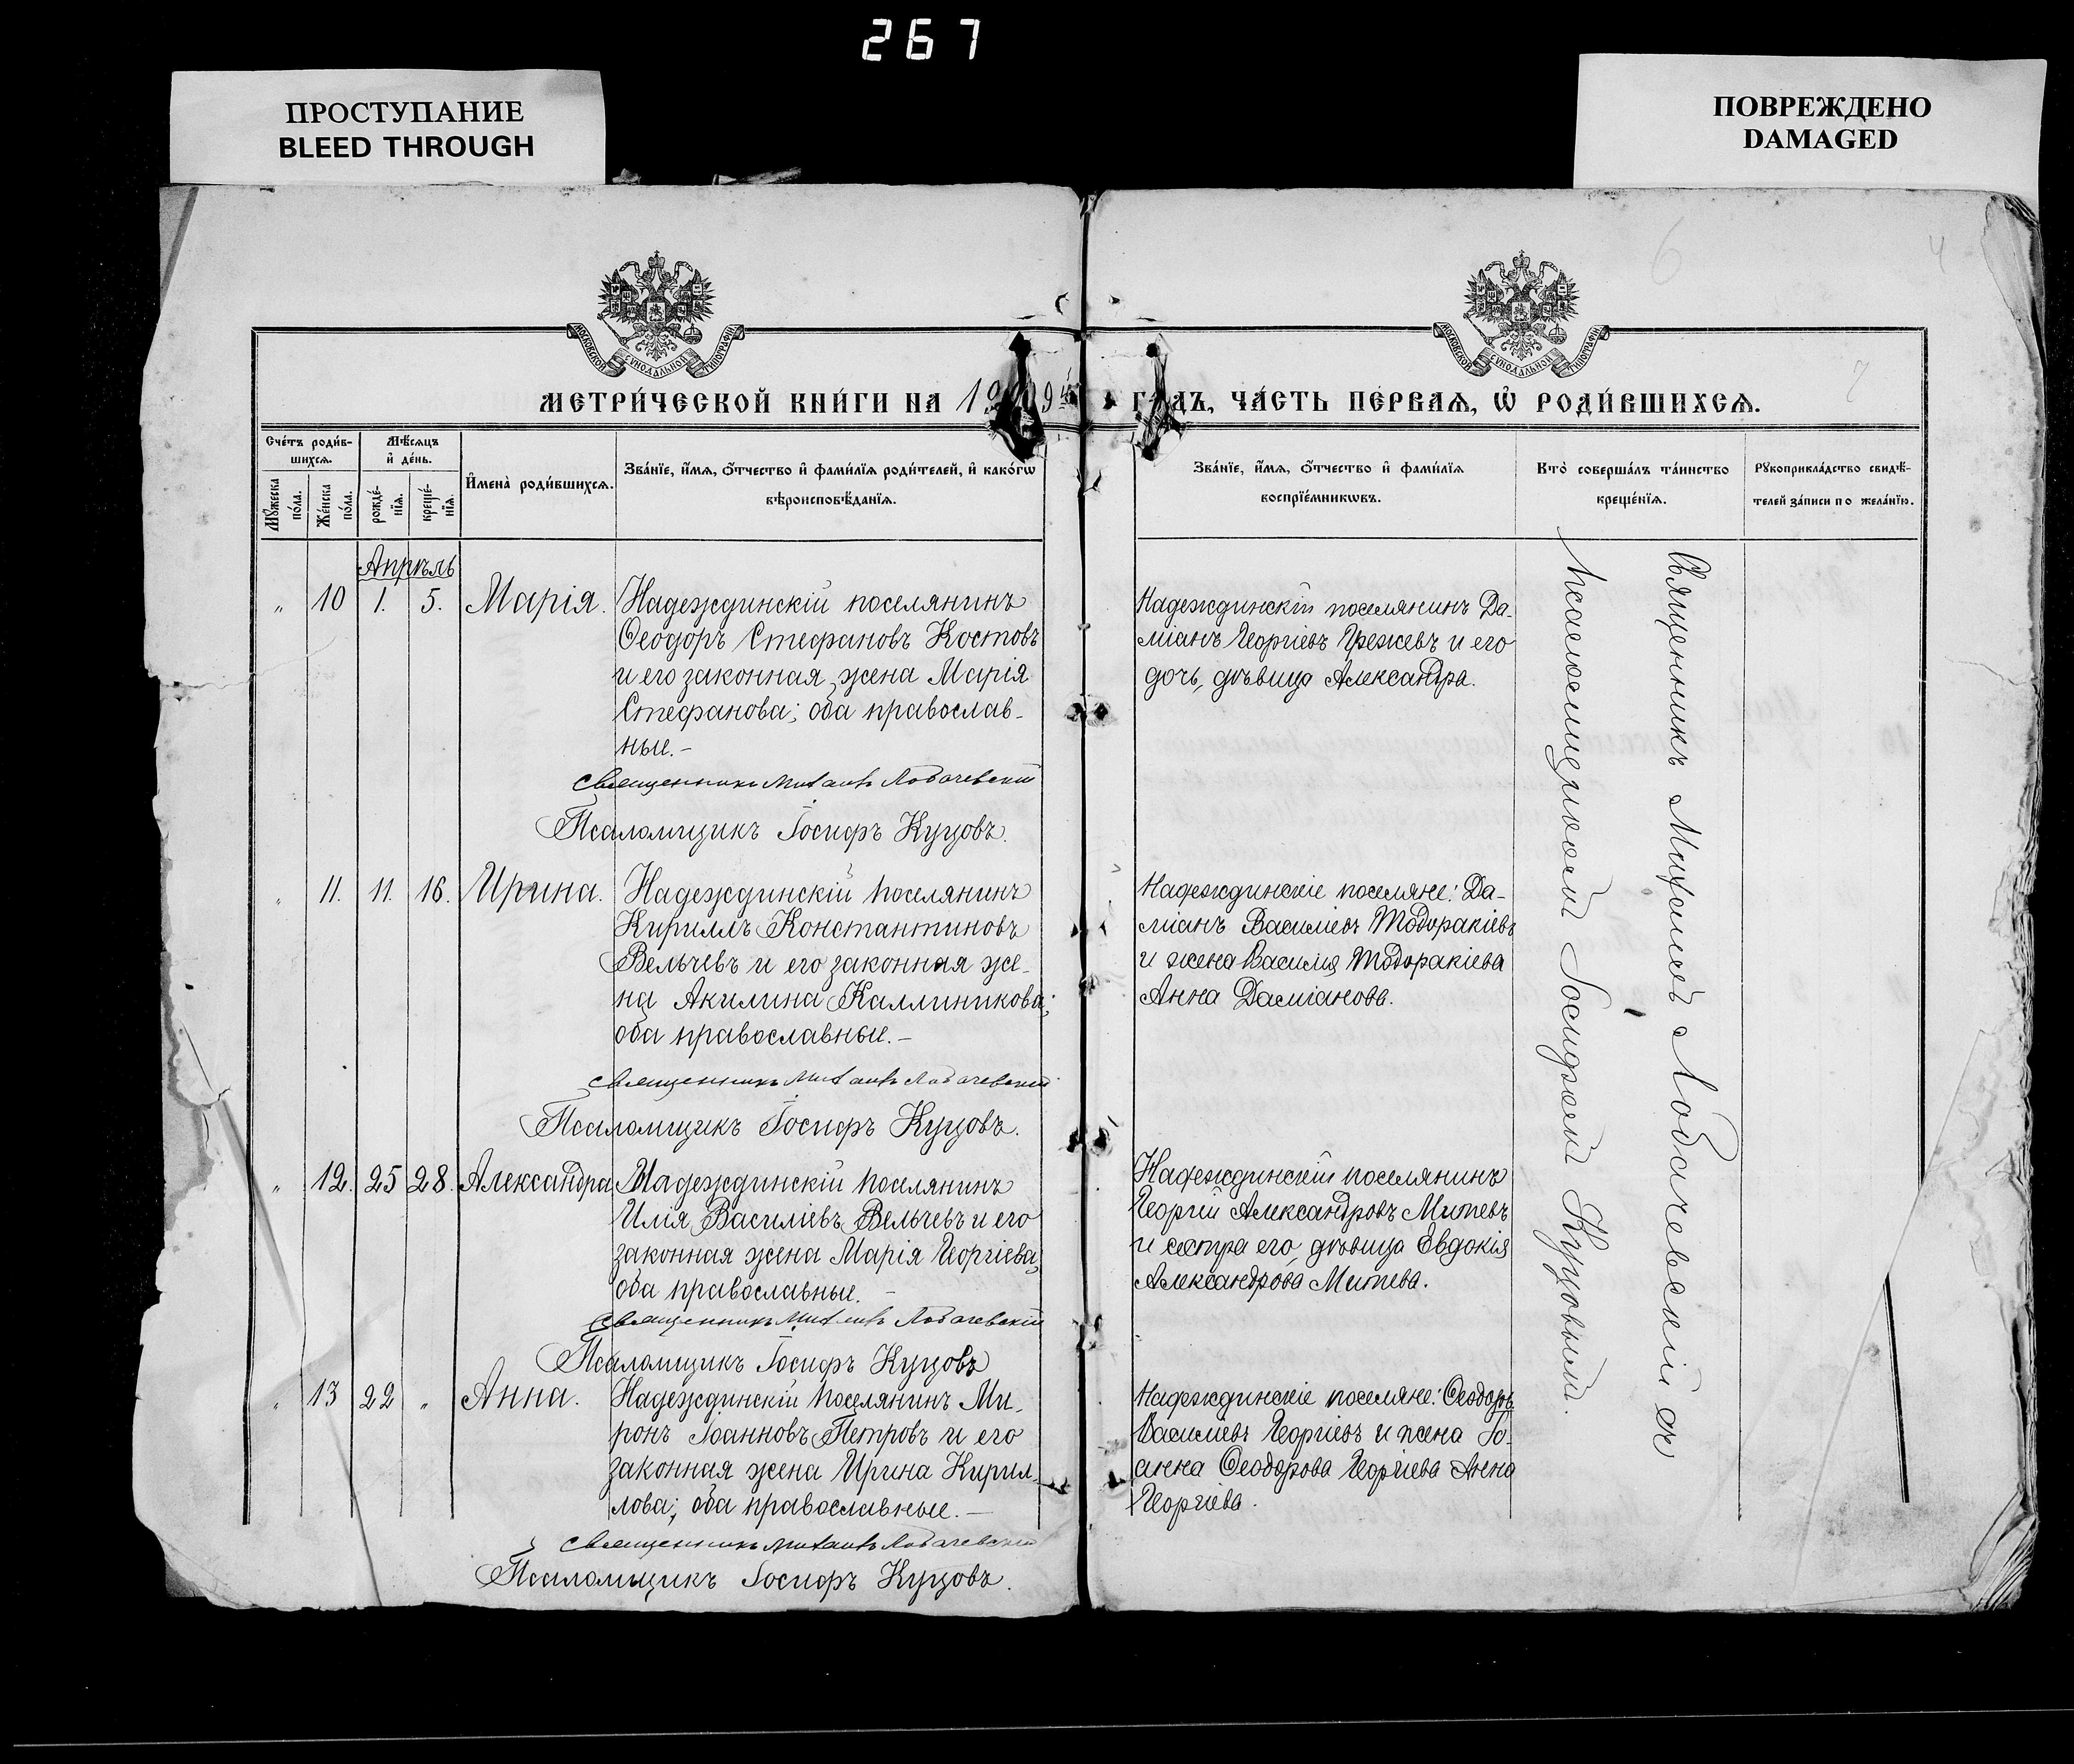 267
ПРОСТУПАНИЕ
BLEED THROUGH
ПОВРЕЖДЕНО
DAMAGED
6
МОСКОВСКОЙ СУНОДАЛЬНОЙ ТИПОГРАФІИ
МОСКОВСКОЙ СУНОДАЛЬНОЙ ТИПОГРАФІИ
МЕТРИ́ЧЕСКОЙ КНИ́ГИ НА
ГОДЪ, ЧА́СТЬ ПЕ́РВАѦ, Ѽ РОДИ́ВШИХСѦ.
Сче́тъ роди́в-
шихсѧ.
Мѣ́сѧцъ
и҆ де́нь.
Мꙋ́жеска
по́ла.
Же́нска
по́ла.
рожде́-
нїѧ.
креще́-
нїѧ.
И҆мена̀ роди́вшихсѧ.
Зва́нїе, и҆́мѧ, ѻ҆́тчество и҆ фами́лїѧ роди́телей, и҆ како́гѡ
вѣроисповѣ́данїѧ.
Зва́нїе, и҆́мѧ, ѻ҆́тчество и҆ фами́лїѧ
воспрїе́мникѡвъ.
Кто̀ соверша́лъ та́инство
креще́нїѧ.
Рꙋкоприкла́дство свидѣ́-
телей за́писи по жела́нїю.
Апрѣль
" 10 1. 5. Марія.
Надеждинскій поселянинъ
Ѳеодоръ Стефановъ Костовъ
и его законная жена Марія
Стефанова; оба православ-
ные.-
Священникъ Михаилъ Лобачевскій
Псаломщикъ Іосифъ Куцовъ.
Надеждинскій поселянинъ Да-
міанъ Георгіевъ Грежевъ и его
дочь, дѣвица Александра.
" 11. 11. 16. Ирина.
Надеждинскій поселянинъ
Кириллъ Константиновъ
Вельчевъ и его законная же-
на Акилина Каллиникова;
оба православные.-
Священникъ Михаилъ Лобачевскій
Псаломщикъ Іосифъ Куцовъ.
Надеждинскіе поселяне: Да-
міанъ Василіевъ Тодоракіевъ
и жена Василія Тодоракіева
Анна Даміанова.
" 12. 25 28. Александра
Надеждинскій поселянинъ
Илія Василіевъ Вельчевъ и его
законная жена Марія Георгіева;
оба православные. -
Священникъ Михаилъ Лобачевскій
Псаломщикъ Іосифъ Куцовъ
Надеждинскій поселянинъ
Георгій Александровъ Митевъ
и сестра его, дѣвица Евдокія
Александрова Митева.
" 13 22 " Анна.
Надеждинскій поселянинъ Ми-
ронъ Іоанновъ Петровъ и его
законная жена Ирина Кирил-
лова; оба православные. -
Священникъ Михаилъ Лобачевскій
Псаломщикъ Іосифъ Куцовъ.
Надеждинскіе поселяне: Ѳеодоръ
Василіевъ Георгіевъ и жена Іо-
анна Ѳеодорова Георгіева Анна
Георгіева.
Священникъ Михаилъ Лобачевскій съ
псаломщикомъ Іосифомъ Куцовымъ.